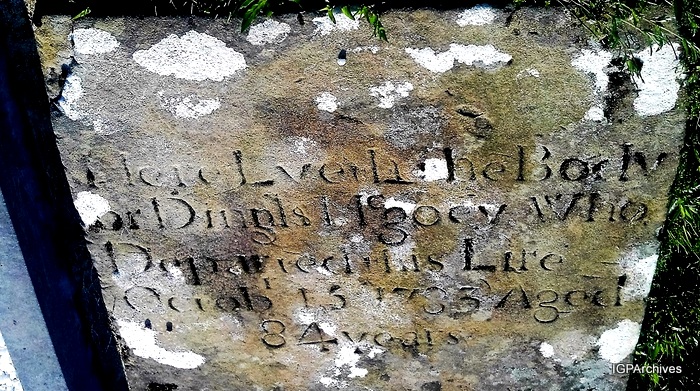 Here Lyeth the Body
of Dingls Mcgoey Who
Departed this Life
Octob 15 1783 Aged
84 years
IGPArchives